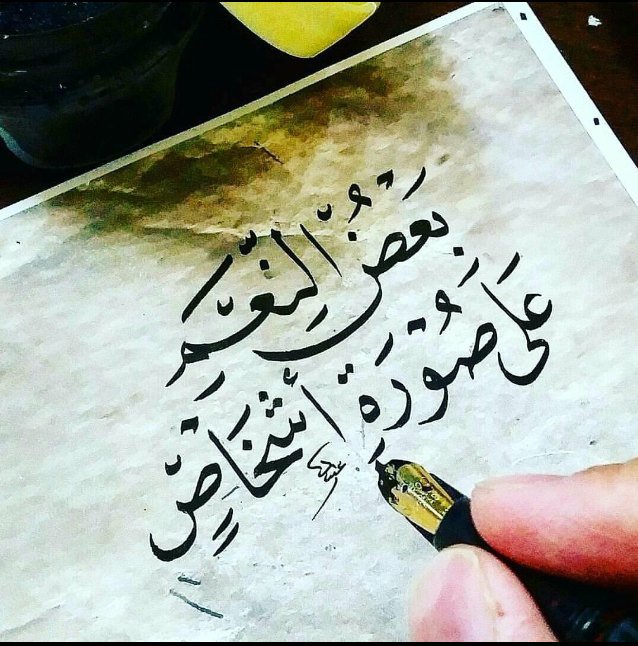 بَعْضُ النِّعَمِ
عَلَى صُورَةِ أشْخَاصٍ